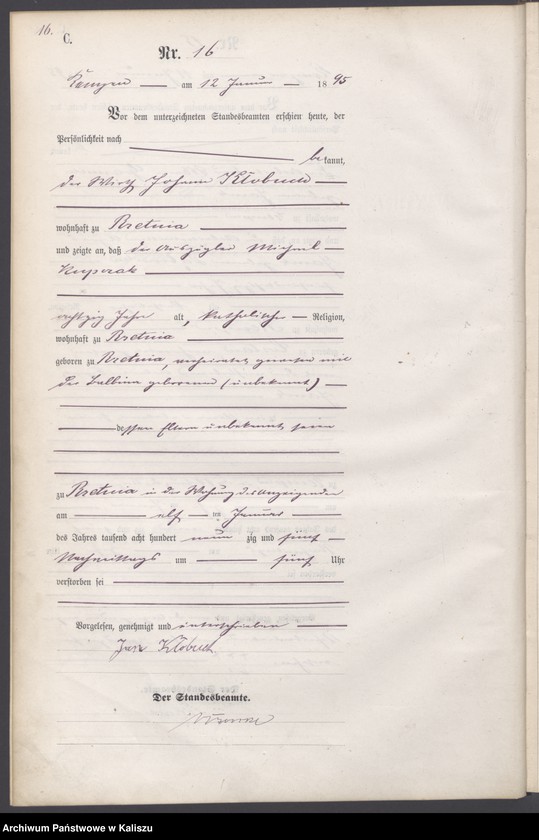 16.
C.
Nr. 16
Kempen am 12 Januar 1895
Vor dem unterzeichneten Standesbeamten erschien heute, der
Persönlichkeit nach
bekannt,
der Wirth Johann Kłobuch
wohnhaft zu Bretnia
und zeigte an, daß der Auszügler Michael
Kasprzak
achtzig Jahr alt, katholischer Religion,
wohnhaft zu Bretnia
geboren zu Bretnia, verheirathet gewesen mit
der Balbina geborenen (unbekannt)
dessen Eltern unbekannt seien
zu Bretnia in der Wohnung des Anzeigenden
am elf ten Januar
des Jahres tausend acht hundert neun zig und fünf
Nachmittags um fünf Uhr
verstorben sei
Vorgelesen, genehmigt und unterschrieben
Jan Kłobuch
Der Standesbeamte.
Archiwum Państwowe w Kaliszu